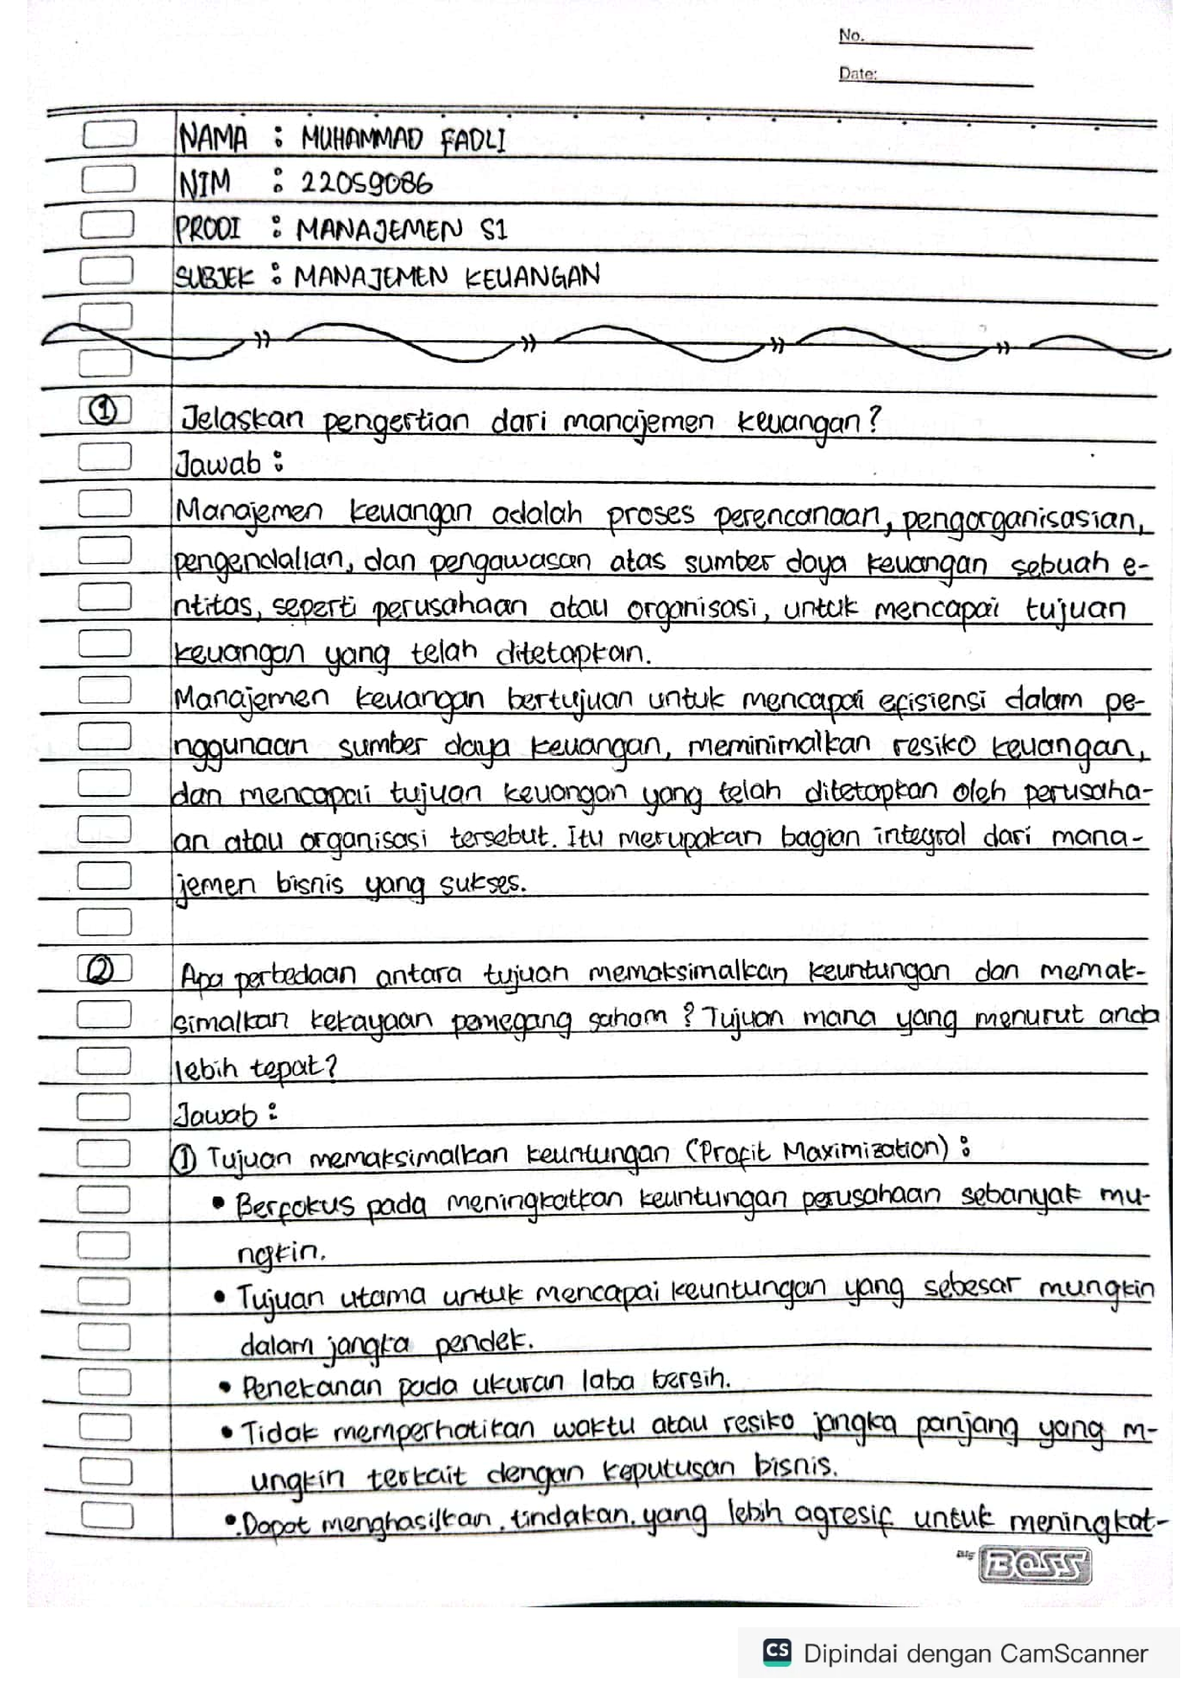 No.
Date:
NAMA : MUHAMMAD FADLI
NIM : 22059086
PRODI : MANAJEMEN S1
SUBJEK : MANAJEMEN KEUANGAN
① Jelaskan pengertian dari manajemen keuangan?
Jawab :
Manajemen keuangan adalah proses perencanaan, pengorganisasian,
pengendalian, dan pengawasan atas sumber daya keuangan sebuah e-
ntitas, seperti perusahaan atau organisasi, untuk mencapai tujuan
keuangan yang telah ditetapkan.
Manajemen keuangan bertujuan untuk mencapai efisiensi dalam pe-
nggunaan sumber daya keuangan, meminimalkan resiko keuangan,
dan mencapai tujuan keuangan yang telah ditetapkan oleh perusaha-
an atau organisasi tersebut. Itu merupakan bagian integral dari mana-
jemen bisnis yang sukses.
② Apa perbedaan antara tujuan memaksimalkan keuntungan dan memak-
simalkan kekayaan pemegang saham? Tujuan mana yang menurut anda
lebih tepat?
Jawab :
① Tujuan memaksimalkan keuntungan (Profit Maximization) :
• Berfokus pada meningkatkan keuntungan perusahaan sebanyak mu-
ngkin.
• Tujuan utama untuk mencapai keuntungan yang sebesar mungkin
dalam jangka pendek.
• Penekanan pada ukuran laba bersih.
• Tidak memperhatikan waktu atau resiko jangka panjang yang m-
ungkin terkait dengan keputusan bisnis.
• Dapat menghasilkan tindakan yang lebih agresif untuk meningkat-
BIG BOSS
CS Dipindai dengan CamScanner